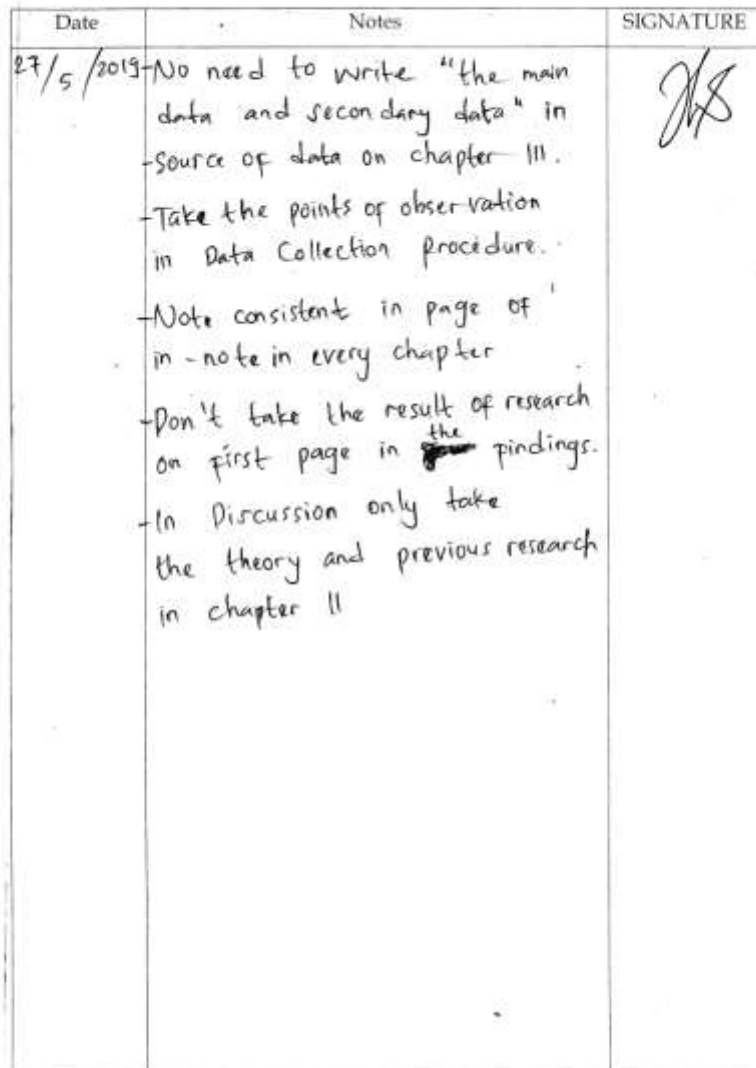 Date Notes SIGNATURE
27/5/2019 -No need to write "the main
data and secondary data" in
-source of data on chapter III.
-Take the points of observation
in Data Collection procedure.
-Note consistent in page of
in-note in every chapter
-Don't take the result of research
on first page in the pindings.
-In Discussion only take
the theory and previous research
in chapter II